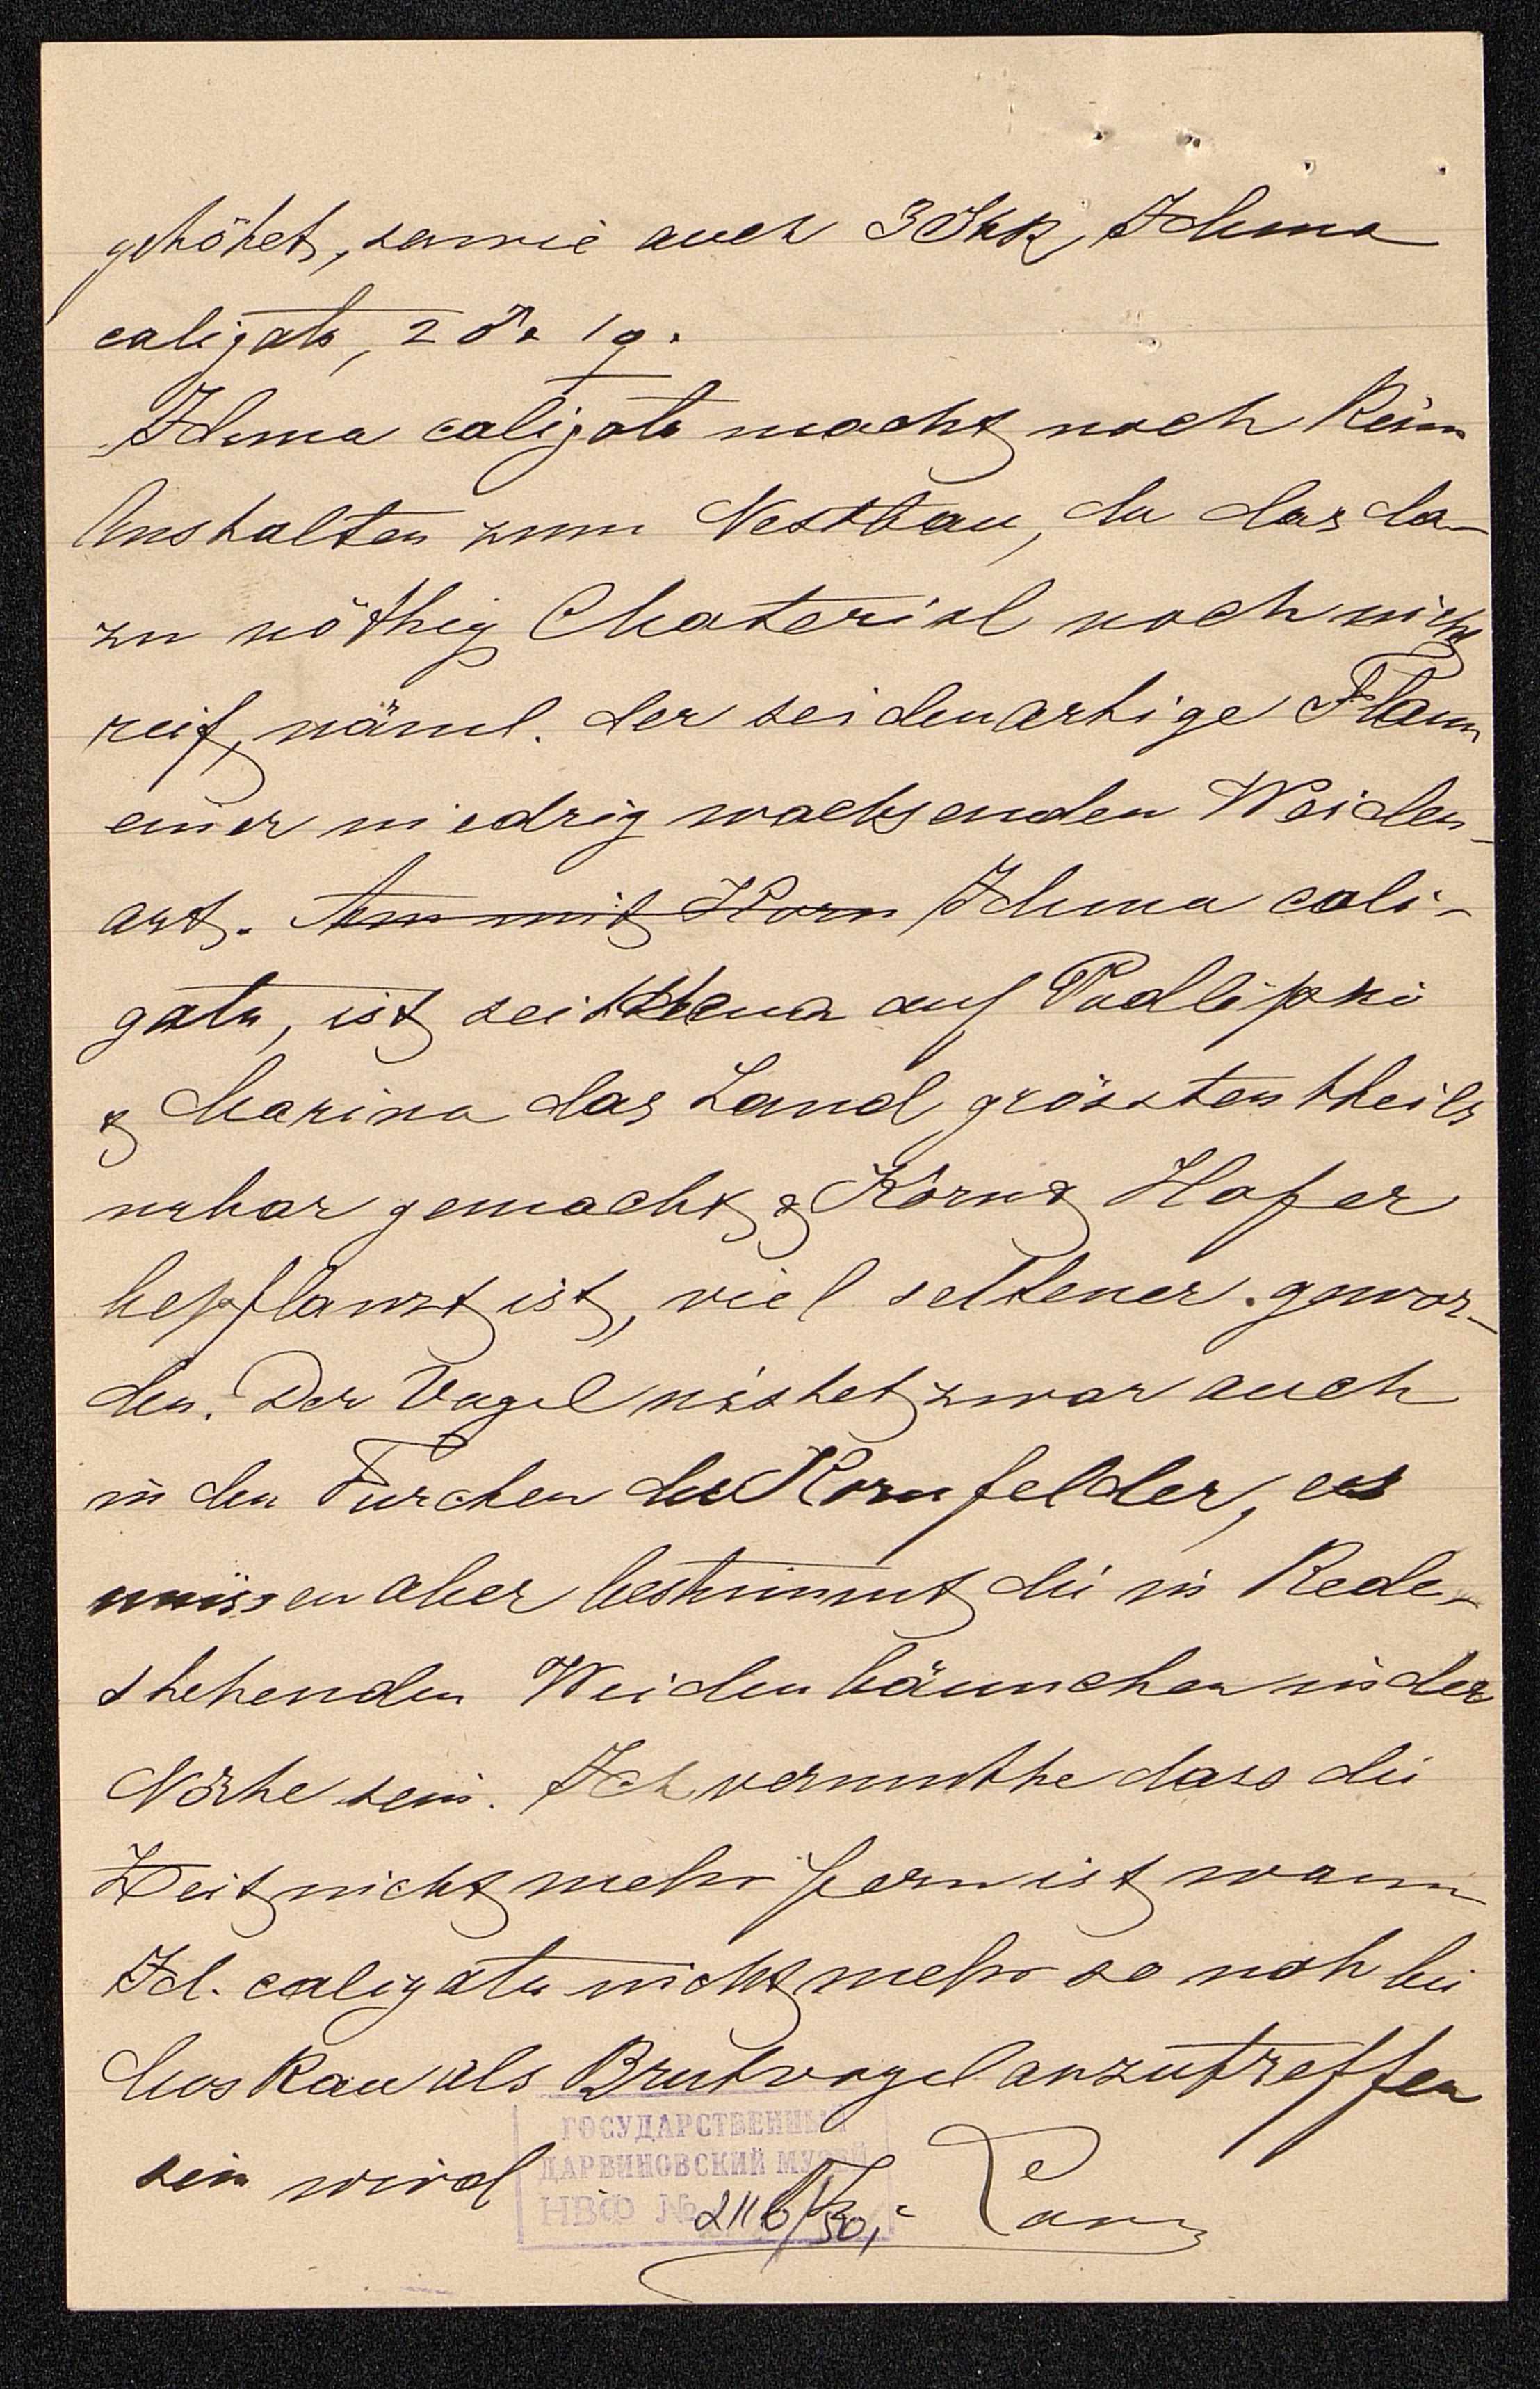 sowie auch 3 Stk, Iduna
caligata, 2 ♂ & 1 ♀.
Iduna caligata macht noch kein
Anstalten zum Nestbau, da das da-
zu nöthig Material noch nicht
reif, näml. der seidenartige Flaum
einer niedrig wachsenden Weiden-
art. mit Korn Iduna cali-
gata, ist seitdem auf Podlipki
& Marino das Land grösstentheils
urbar gemacht & Korn & Hafer
bepflanzt ist, viel seltener gewor-
den. Der Vogel nistet zwar auch
in den Furchen der Kornfelder, es
müssen aber bestimmt die in Rede
stehenden Weidenbäumchen in der
Nähe sein. Ich vermuthe dass die
Zeit nicht mehr fern ist wann
Id. caligata nicht mehr so nah bei
Moskau als Brutvogel anzutreffen
sein wird
ГОСУДАРСТВЕННЫЙ
ДАРВИНОВСКИЙ МУЗЕЙ
НВФ № 2116/50